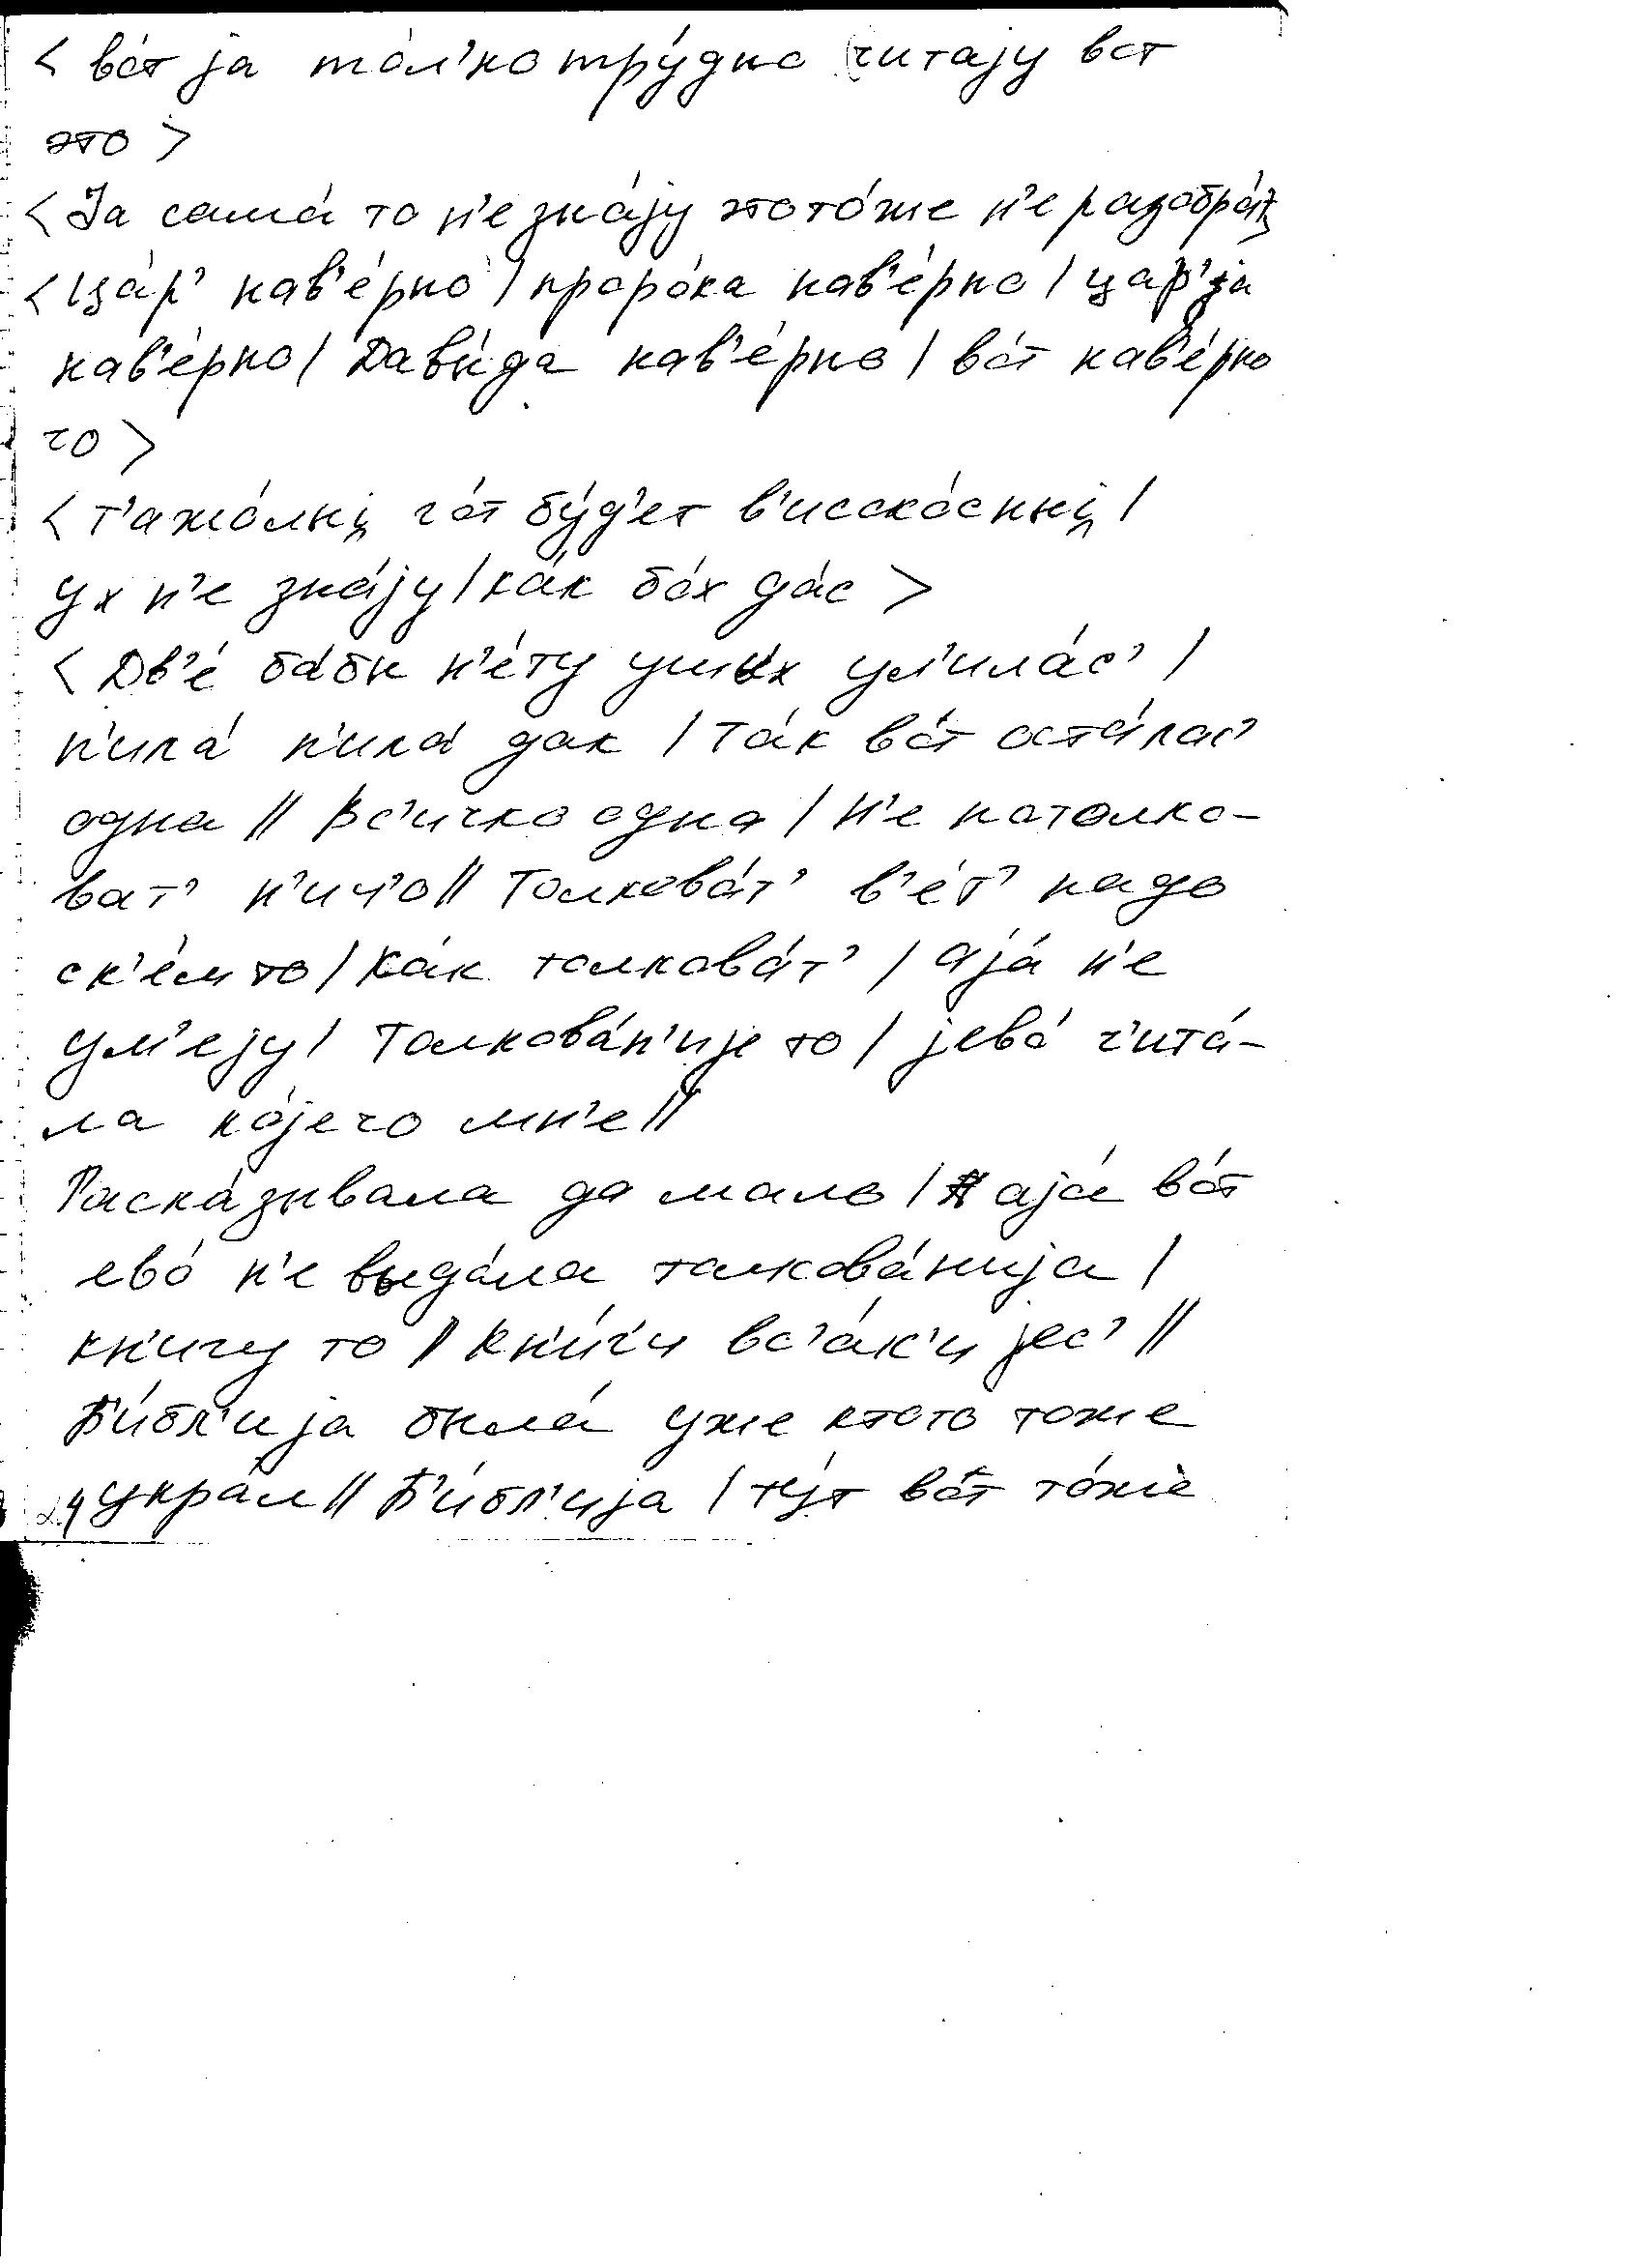 < во́т ја то́л'ко тру́дно читају вот
это >
< Ја сама́ то н'е зна́ју это то́же н'е разобра́т'>
< ца́р' нав'е́рно / проро́ка нав'е́рно / цар'jа
нав'е́рно / Давы́да нав'е́рно / во́т нав'е́рно
чо >
< т'ажо́лыį го́т бу́д'ет в'исоко́сныį /
ух н'е зна́ју / ка́к бо́х да́с >
< Дв'е́ ба́бы н'е́ту ушы́х ум'ила́с' /
п'ила́ п'ила́ дак / та́к во́т оста́лас'
одна // вс'ичко одна / н'е потолко-
ват' н'ич'о // Толкова́т' в'е́т' надо
ск'е́м то / ка́к толкова́т' / аја́ н'е
ум'еју / Толкова́н'ије то / јево́ ч'ита́-
ла ко́јечо мн'е //
Раска́зывала да мало / аја́ во́т
ево́ н'е выда́ла толкова́нија /
кн'игу то // кн'и́г'и вс'а́к'и јес' //
Б'и́бл'ија была́ уже ктото тоже
укра́л // Б'и́бл'ија / ту́т во́т то́же